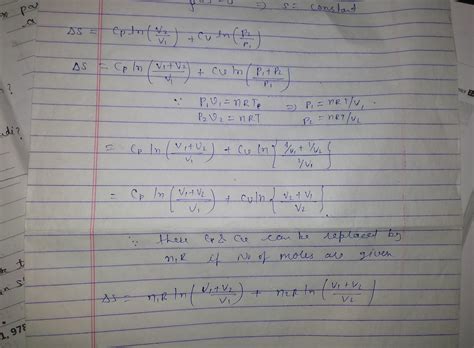 ⇒ S = constant
ΔS = Cp ln(V2/V1) + Cv ln(P2/P1)
ΔS = Cp ln((V1+V2)/V1) + Cv ln((P1+P2)/P1)
∵ P1V1 = nRT ⇒ P1 = nRT/V1
P2V2 = nRT P2 = nRT/V2
= Cp ln((V1+V2)/V1) + Cv ln{(1/V1 + 1/V2)/(1/V1)}
= Cp ln((V1+V2)/V1) + Cv ln{(V2+V1)/V2}
∵ these Cp & Cv can be replaced by
n,R if No of moles are given
ΔS = n1R ln((V1+V2)/V1) + n2R ln((V1+V2)/V2)